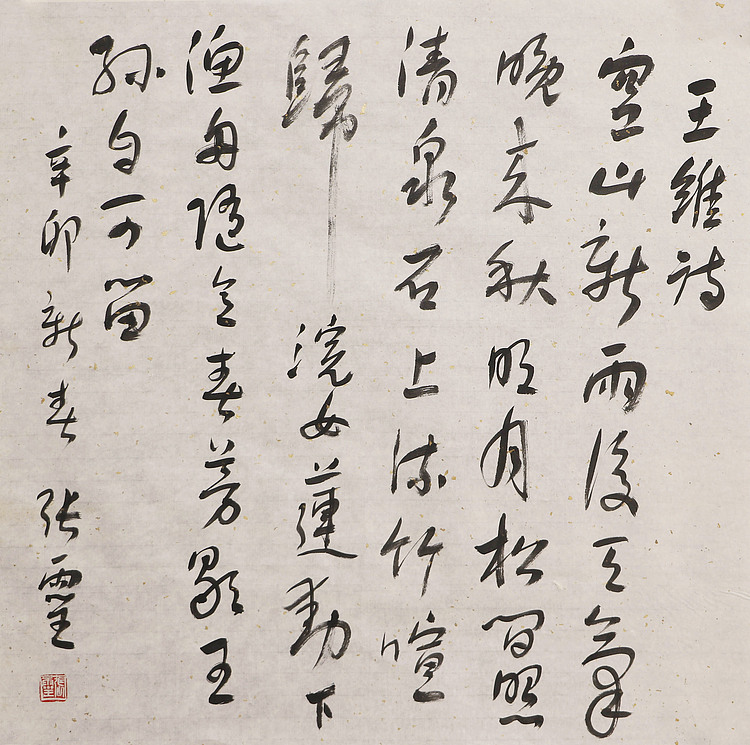 王維詩
空山新雨後天氣
晚来秋明月松間照
清泉石上流竹喧
歸浣女蓮動下
漁舟随意春芳歇王
孫自可留
辛卯新春 张